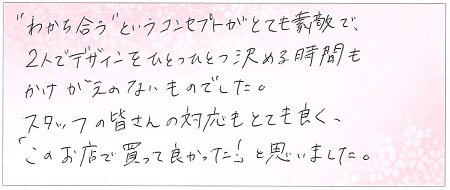 "わかち合う"というコンセプトがとても素敵で、
2人でデザインをひとつひとつ決める時間も
かけがえのないものでした。
スタッフの皆さんの対応もとても良く、
「このお店で買って良かった!」と思いました。